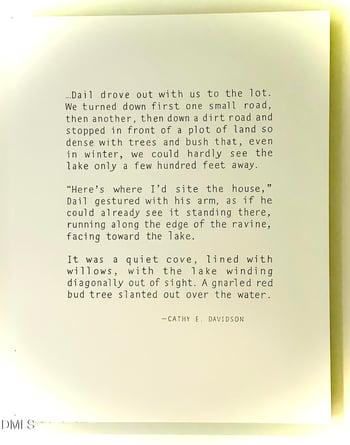 …Dail drove out with us to the lot.
We turned down first one small road,
then another, then down a dirt road and
stopped in front of a plot of land so
dense with trees and bush that, even
in winter, we could hardly see the
lake only a few hundred feet away.
“Here’s where I’d site the house,”
Dail gestured with his arm, as if he
could already see it standing there,
running along the edge of the ravine,
facing toward the lake.
It was a quiet cove, lined with
willows, with the lake winding
diagonally out of sight. A gnarled red
bud tree slanted out over the water.
—CATHY E. DAVIDSON